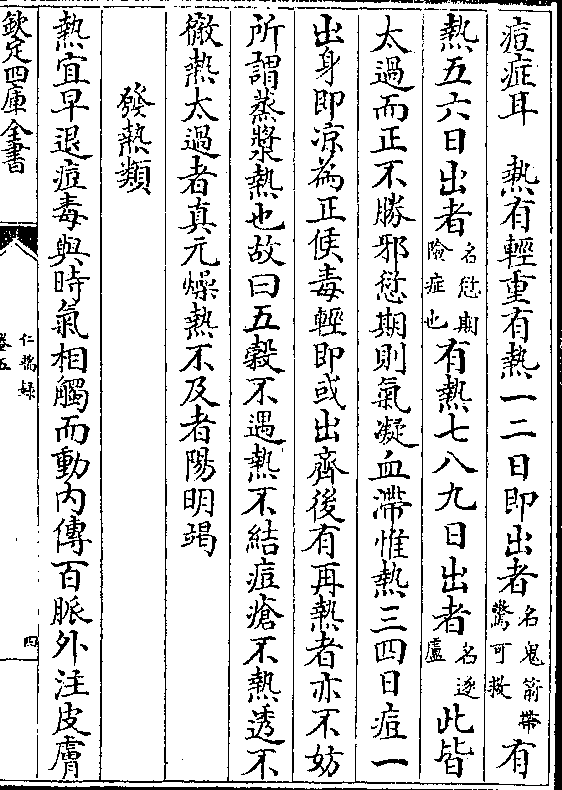 痘症耳　熱有輕重有熱一二日即出者名鬼箭帶驚可救有
熱五六日出者名愆期險症也有熱七八九日出者名逐盧此皆
太過而正不勝邪愆期則氣凝血滯惟熱三四日痘一
出身即凉為正候毒輕即或出齊後有再熱者亦不妨
所謂蒸漿熱也故曰五穀不遇熱不結痘瘡不熱透不
徹熱太過者真元燥熱不及者陽明竭
發熱類
熱宜早退痘毒與時氣相觸而動内傳百脈外注皮膚
欽定四庫全書
仁端録
卷五
四